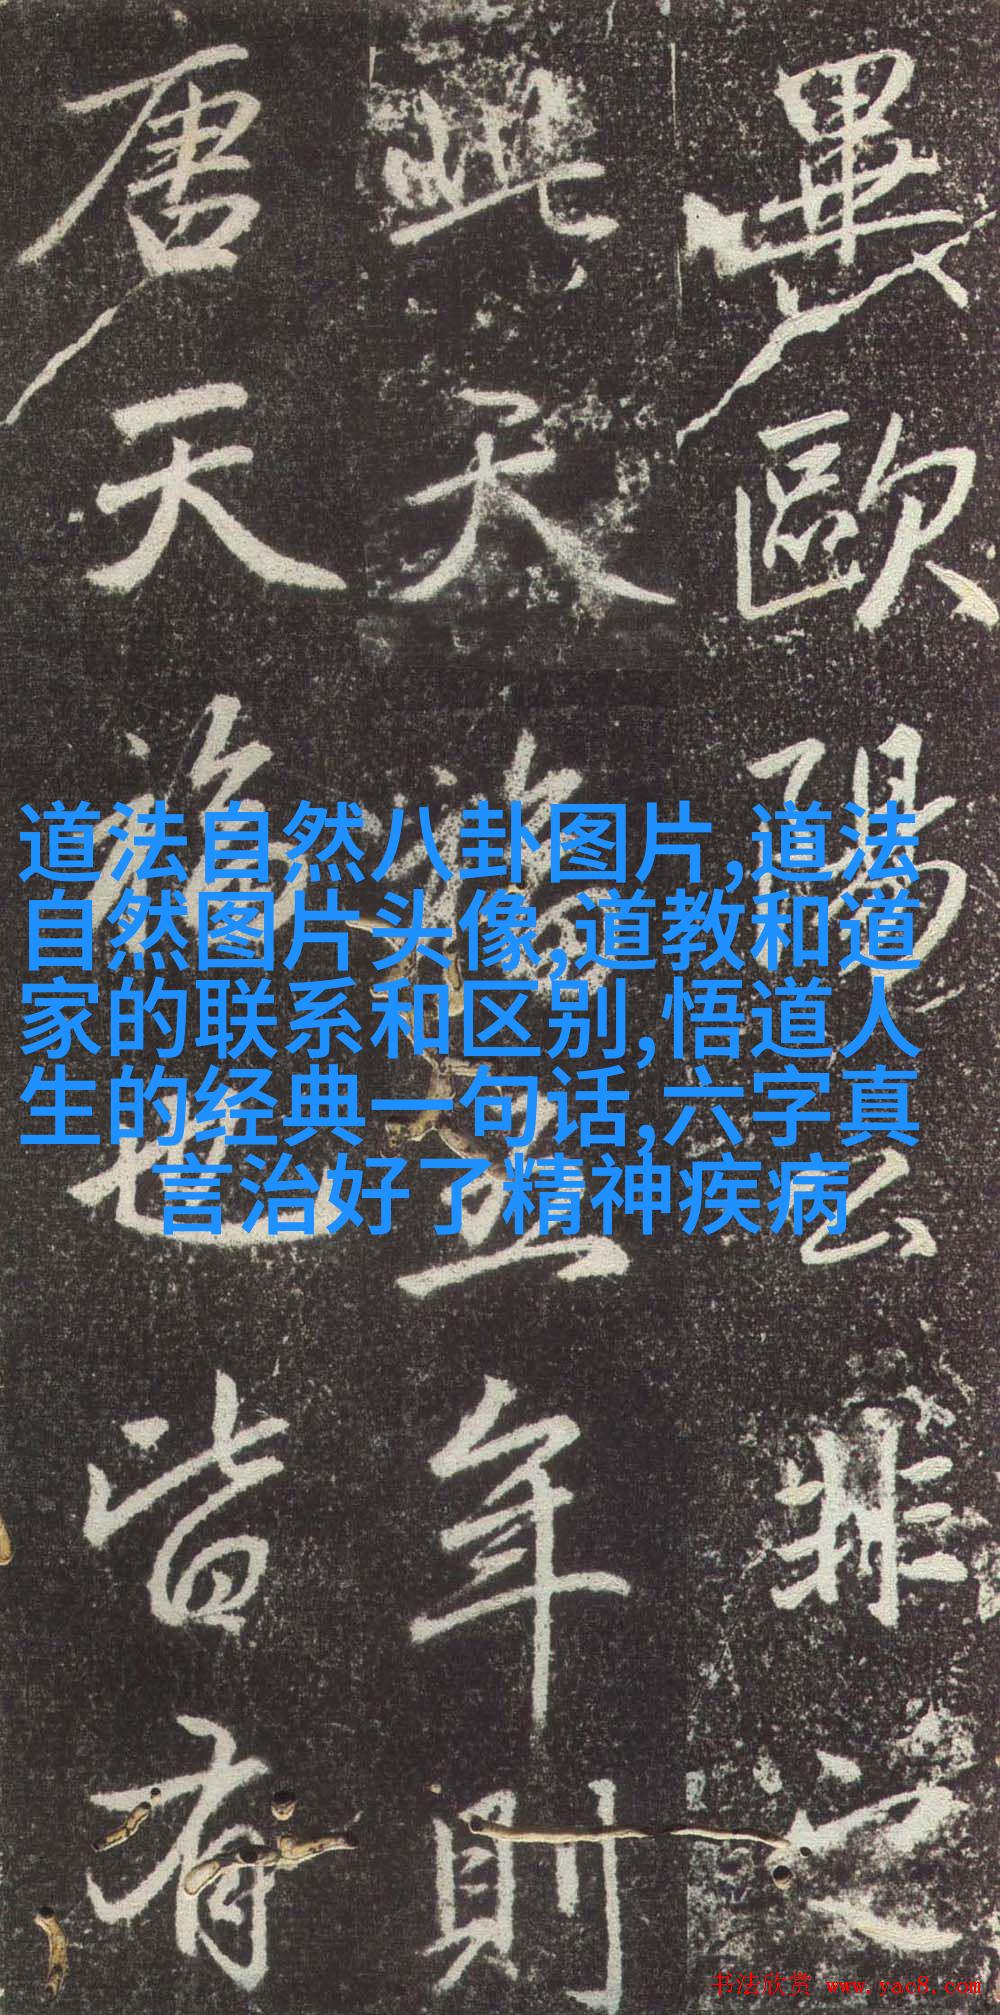 畢歐陽公非之
此天五年則
唐天也皆有
道法自然八卦图片,道法
自然图片头像,道教和道
家的联系和区别,悟道人
生的经典一句话,六字真
言治好了精神疾病
书法欣赏 www.yac8.com